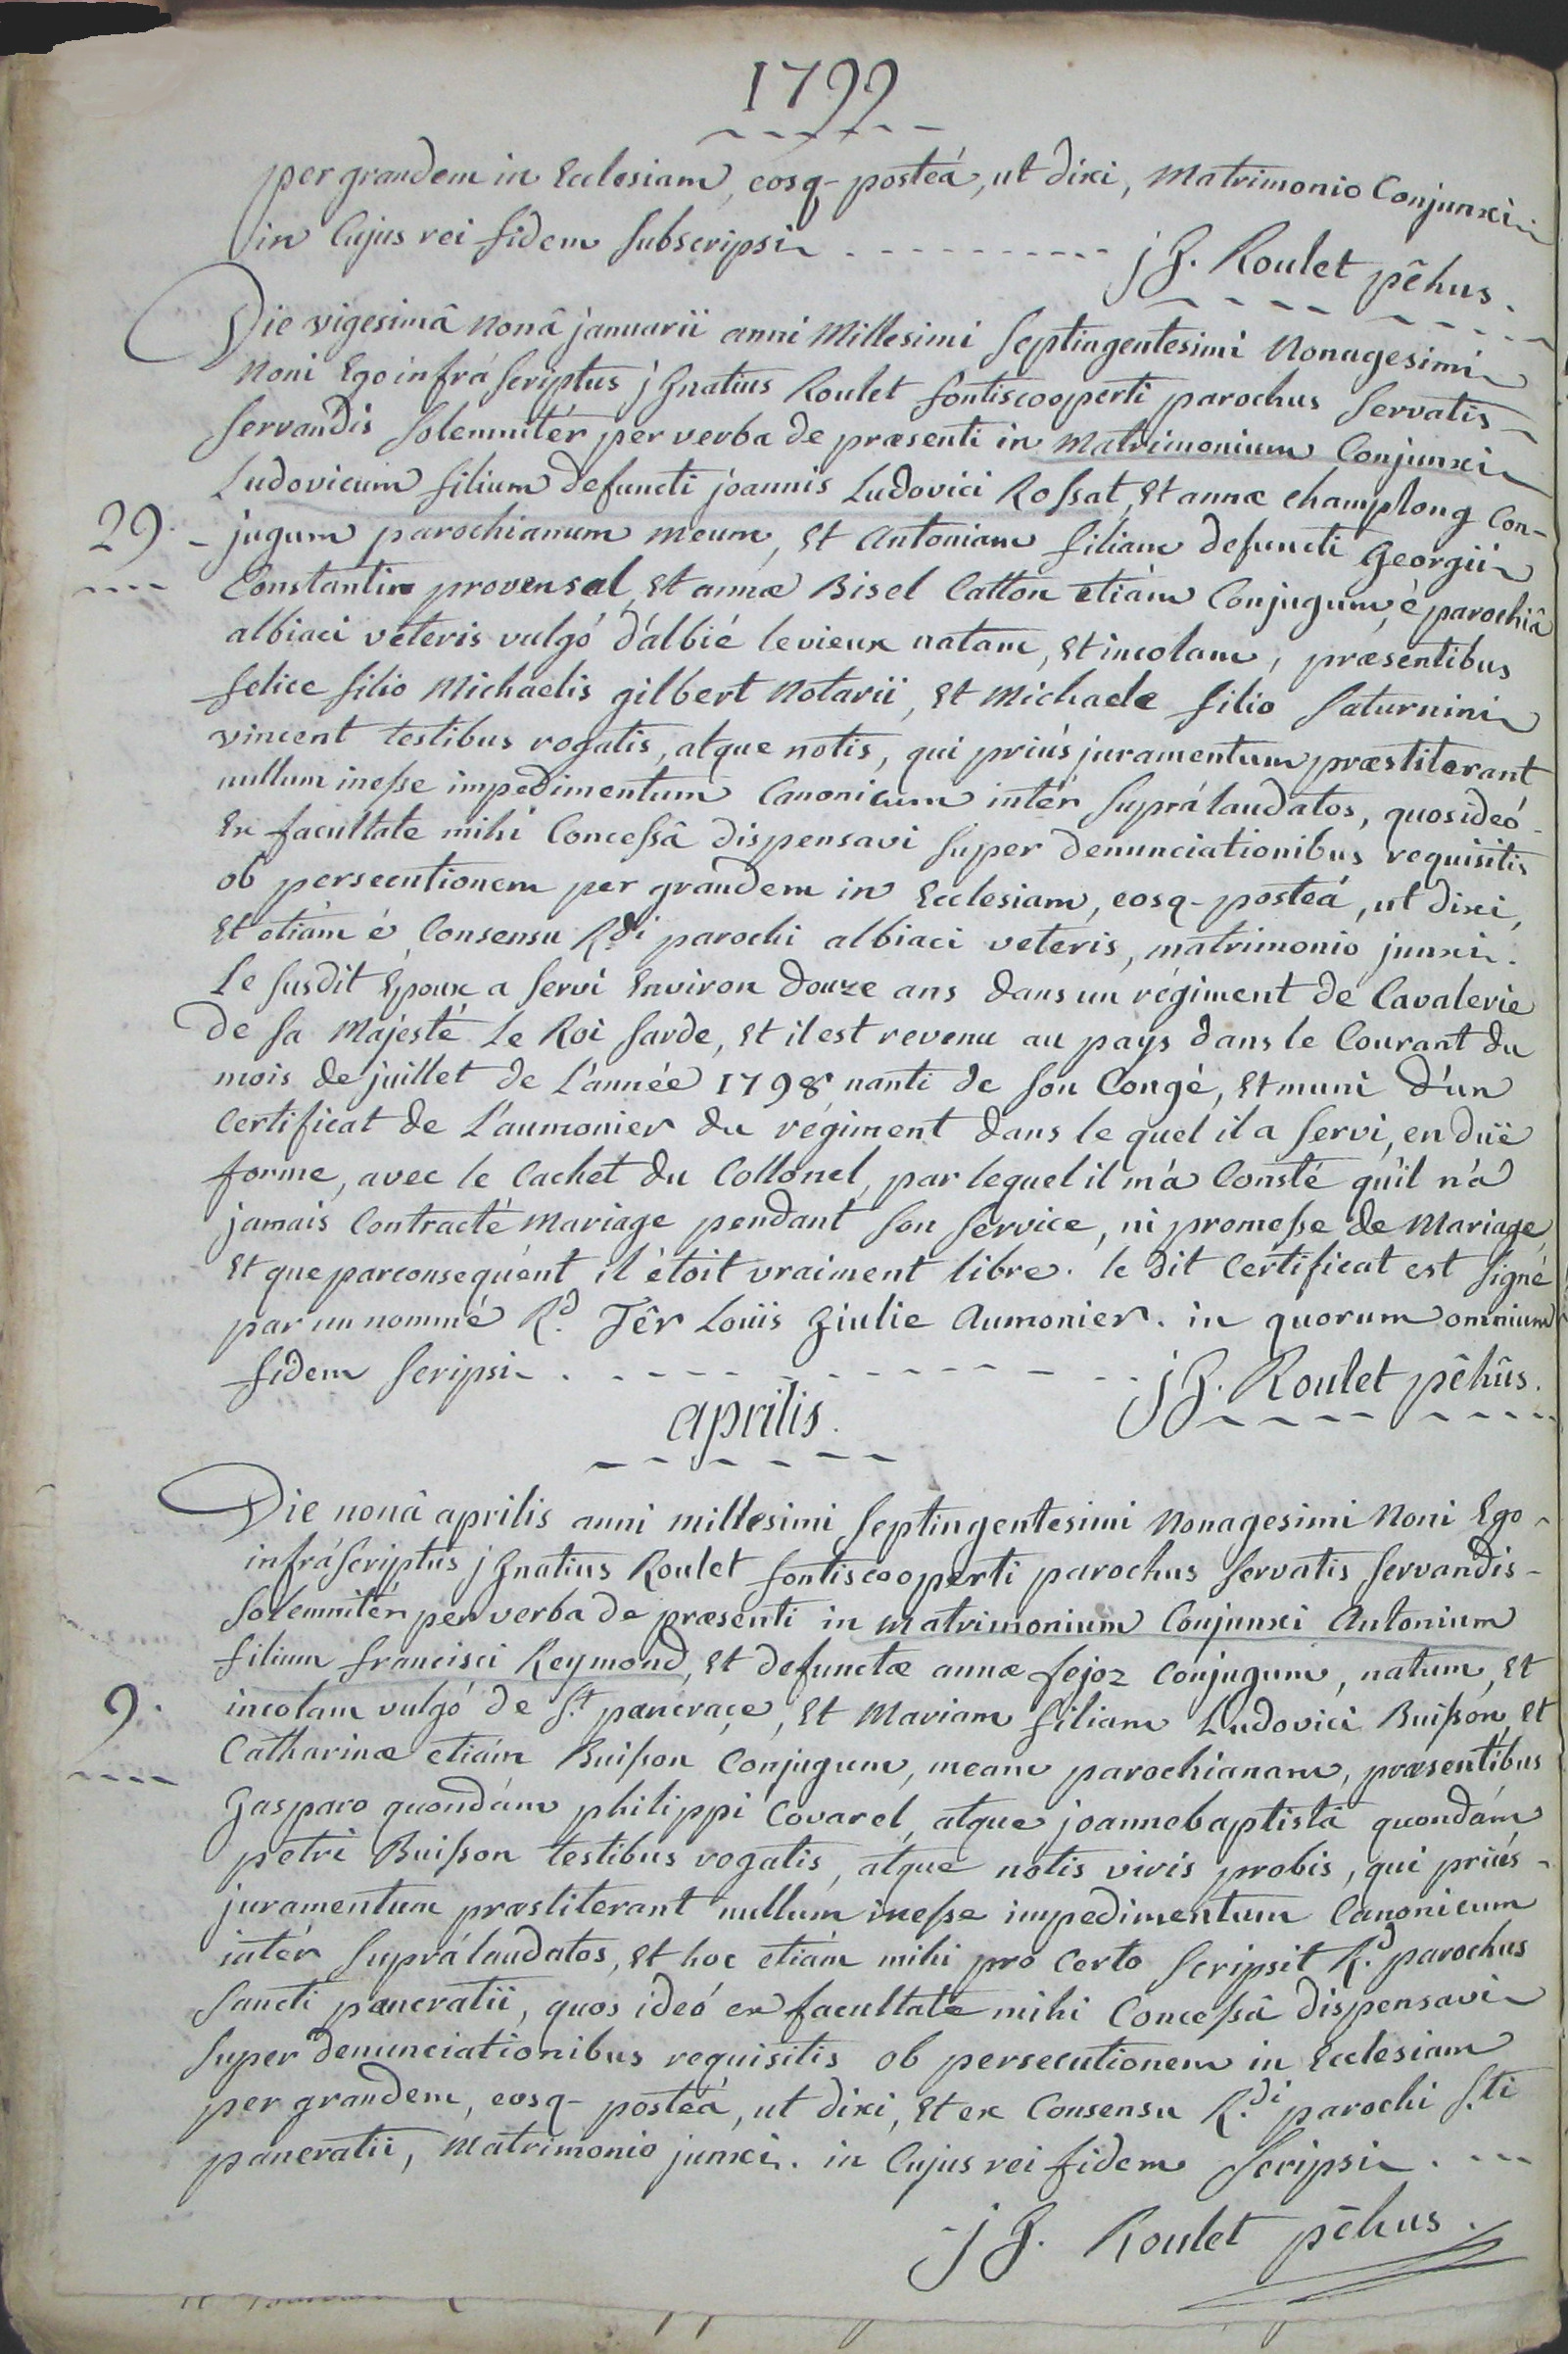 1799
per grandem in Ecclesiam, eosq- posteá, ut dixi, Matrimonio Conjunxi
in Cujus rei fidem subscripsi - - - - - - - - - - jg. Roulet pêhus.
Die vigesimâ nonâ januarii anni Millesimi Septingentesimi Nonagesimi
Noni Ego infrá scriptus jgnatius Roulet fontiscooperti parochus servatis
servandis solemnitér per verba de præsenti in Matrimonium Conjunxi
Ludovicum filium defuncti joannis Ludovici Rossat, Et annæ champlong Con-
29. - jugum parochianum meum, Et Antoniam filiam defuncti Georgii
Constantin provensal, Et annæ Bisel Catton etiám Conjugum, è parochiâ
albiaci veteris vulgó d'albié levieux natam, Et incolam, præsentibus
felice filio Michaelis gilbert Notarii, Et Michaele filio Saturnini
vincent testibus rogatis, atque notis, qui priús juramentum præstiterant
nullum inesse impedimentum Canonicum intér suprálaudatos, quosideó
Ex facultate mihi Concessâ dispensavi super denunciationibus requisitis
ob persecutionem per grandem in Ecclesiam, eosq- posteá, ut dixi,
Et etiám é Consensu R.di parochi albiaci veteris, matrimonio junxi.
Le susdit Époux a servi Environ douze ans dans un régiment de Cavalerie
de sa Majesté Le Roi sarde, Et il est revenu au pays dans le Courant du
mois de juillet de L'année 1798 nanti de son Congé, Et muni d'un
Certificat de L'aumonier du régiment dans le quel il a servi, en duë
forme, avec le Cachet du Collonel, par lequel il m'a Consté qu'il n'a
jamais Contracté Mariage pendant son service, ni promesse de Mariage,
Et que parconsequent il étoit vraiment libre. le dit Certificat est signé
par un nommé R.d Têr Louis Ziulie Aumonier. in quorum omnium
fidem scripsi. - - - - - - - - - - jg. Roulet pêhûs.
aprilis.
Die nonâ aprilis anni millesimi Septingentesimi Nonagesimi Noni Ego
infráscriptus jgnatius Roulet fontiscooperti parochus servatis servandis
solemnitér per verba de præsenti in Matrimonium Conjunxi Antonium
filium francisci Reymond, Et defunctæ annæ fejoz Conjugum, natum, Et
9. incolam vulgó de S.t pancrace, Et Mariam filiam Ludovici Buisson, Et
Catharinæ etiám Buisson Conjugum, meam parochianam, præsentibus
gasparo quondám philippi Covarel, atque joannebaptistâ quondám
petri Buisson testibus rogatis, atque notis viris probis, qui priús
juramentum præstiterant nullum inesse impedimentum Canonicum
intér suprálaudatos, Et hoc etiám mihi pro Certo scripsit R.d parochus
Sancti pancratii, quos ideó ex facultate mihi Concessâ dispensavi
super denunciationibus requisitis ob persecutionem in Ecclesiam
per grandem, eosq- posteá, ut dixi, Et ex Consensu R.di parochi S.ti
pancratii, Matrimonio junxi. in Cujus rei fidem scripsi. - - -
jg. Roulet pêhus.